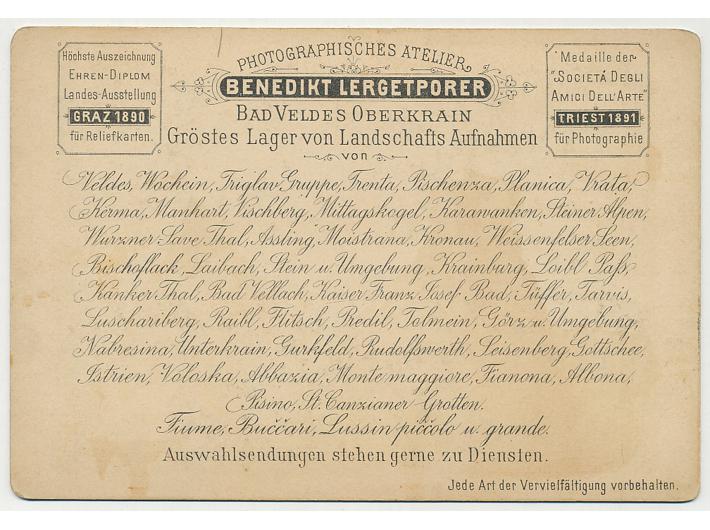 Höchste Auszeichnung
EHREN-DIPLOM
Landes-Ausstellung
GRAZ 1890
für Reliefkarten.
PHOTOGRAPHISCHES ATELIER
BENEDIKT LERGETPORER
BAD VELDES OBERKRAIN
Gröstes Lager von Landschafts Aufnahmen
von
Medaille der
"SOCIETÁ DEGLI
AMICI DELL'ARTE"
TRIEST 1891
für Photographie
Veldes, Wochein, Triglav Gruppe, Trenta, Pischenza, Planica, Vrata,
Kerma, Manhart, Vischberg, Mittagskogel, Karawanken, Steiner Alpen,
Wurzner-Save Thal, Assling, Moistrana, Kronau, Weissenfelser Seen,
Bischoflack, Laibach, Stein u. Umgebung, Krainburg, Loibl Paß,
Kanker Thal, Bad Vellach, Kaiser Franz Josef Bad, Tüffer, Tarvis,
Luschariberg, Raibl, Flitsch, Predil, Tolmein, Görz u. Umgebung,
Nabresina, Unterkrain, Gurkfeld, Rudolfswerth, Seisenberg, Gottschee,
Istrien, Voloska, Abbazia, Monte maggiore, Fianona, Albona,
Pisino, St. Canzianer Grotten.
Fiume, Buččari, Lussin piččolo u. grande.
Auswahlsendungen stehen gerne zu Diensten.
Jede Art der Vervielfältigung vorbehalten.